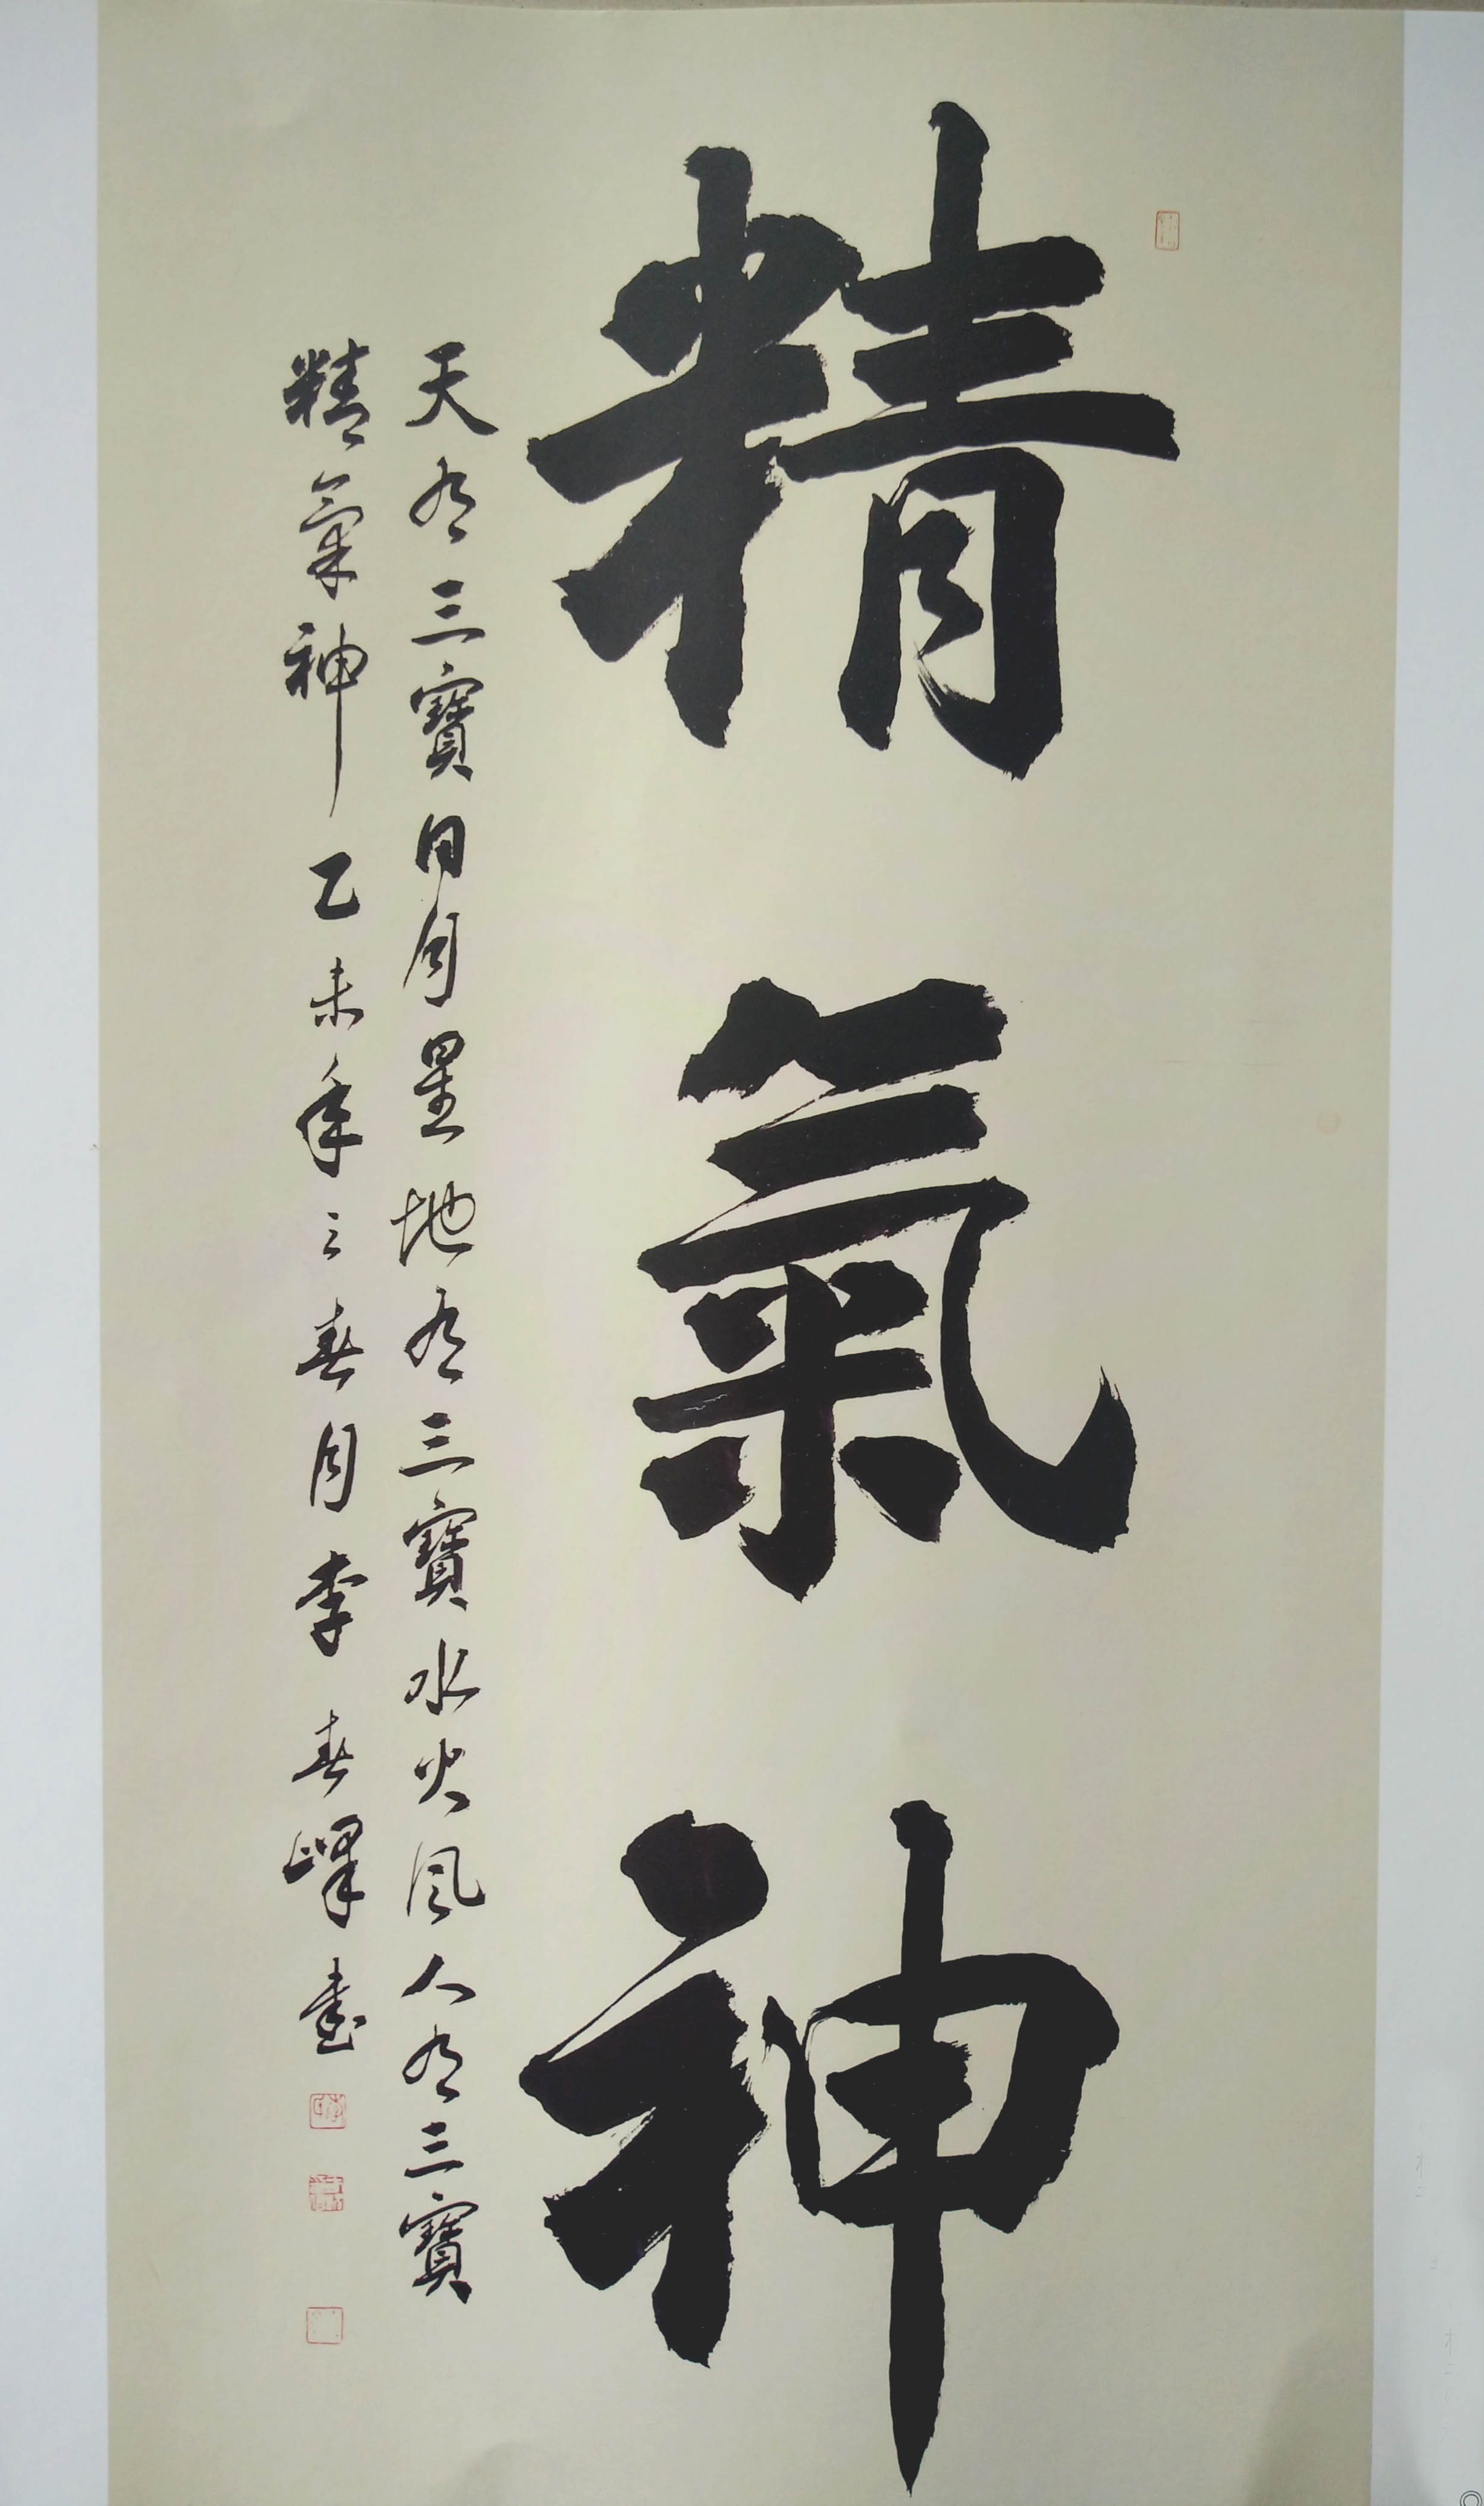 精氣神
天有三寶日月星地有三寶水火風人有三寶
精氣神乙未年之春月李春峄書